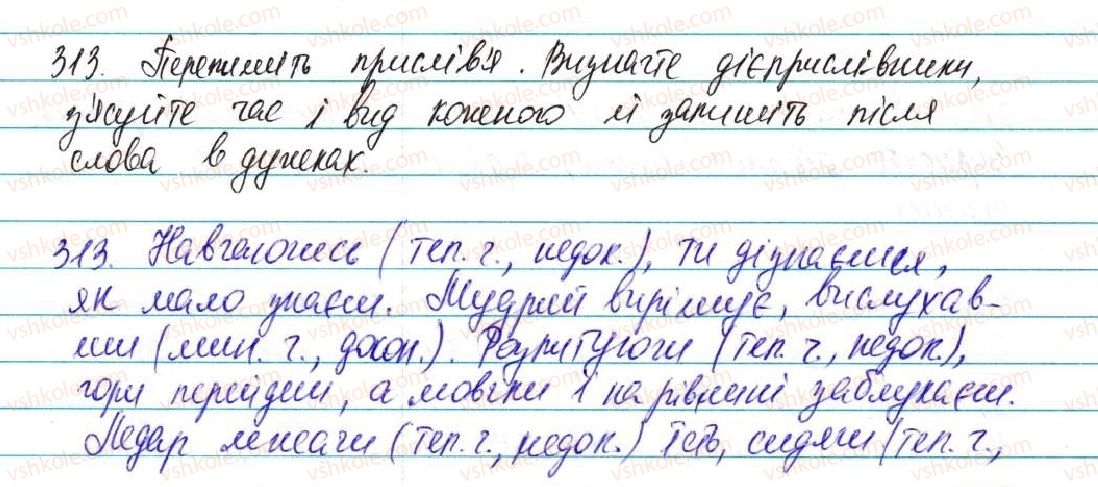 313. Перепишіть прислів'я. Визначте дієприслівники,
з'ясуйте час і вид кожного й запишіть після
слова в дужках.
313. Навчаючись (теп. ч., недок.), ти дізнаєшся,
як мало знаєш. Мудрий вирішує, вислухав-
ши (мин. ч., докон.). Розпитуючи (теп. ч., недок.),
гори перейдеш, а мовчки і на рівнині заблукаєш.
Ледар лежачи (теп. ч., недок.) їсть, сидячи (теп. ч.,